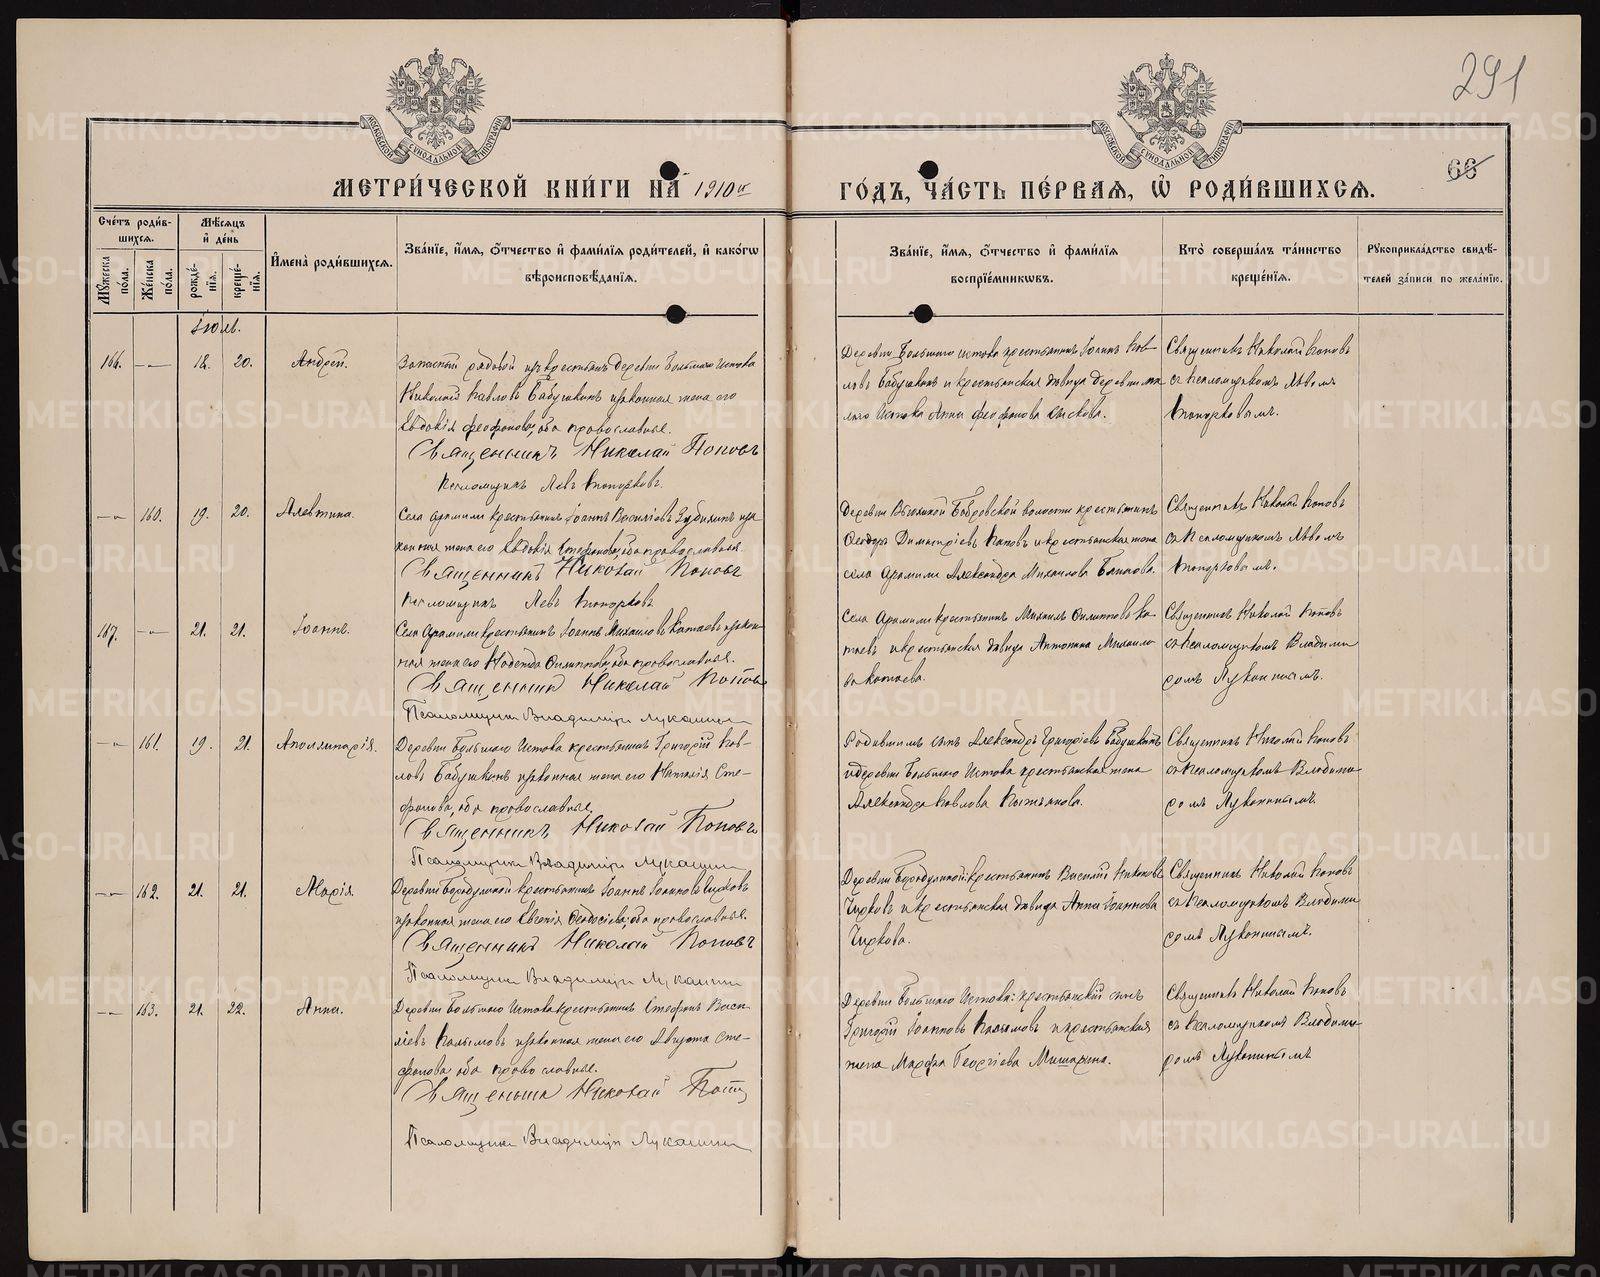 291
66
МОСКОВСКОЙ СѴНОДАЛЬНОЙ ТИПОГРАФІИ
МОСКОВСКОЙ СѴНОДАЛЬНОЙ ТИПОГРАФІИ
МЕТРИ́ЧЕСКОЙ КНИ́ГИ НА̀ 1910й ГО́ДЪ, ЧА́СТЬ ПЕ́РВАЯ, Ѽ РОДИ́ВШИХСЯ.
Сче́тъ роди́в-
шихся.
Мꙋ́жеска по́ла.
Же́нска по́ла.
Мѣ́сяцъ
и҆ де́нь
рожде́-
нїя.
креще́-
нїя.
И҆мена̀ роди́вшихся.
Зва́нїе, и҆́мя, ѻ҆́тчество и҆ фами́лїя роди́телей, и҆ како́гѡ
вѣроисповѣ́данїя.
Зва́нїе, и҆́мя, ѻ҆́тчество и҆ фами́лїя
воспрїе́мникѡвъ.
Кто̀ соверша́лъ та́инство
креще́нїя.
Рꙋкоприкла́дство свидѣ́-
телей за́писи по жела́нїю.
Іюль.
166. —„— 18. 20. Андрей.
Запасный рядовой изъ крестьянъ деревни Большаго Истока
Николай Павловъ Бабушкинъ и законная жена его
Евдокія Феофанова, оба православные.
Священникъ Николай Поповъ
Псаломщикъ Левъ Топорковъ.
Деревни Большаго Истока крестьянинъ Іоаннъ Пав-
ловъ Бабушкинъ и крестьянская дѣвица деревни Ма-
лаго Истока Анна Феофанова
Священникъ Николай Поповъ
съ Псаломщикомъ Львомъ
Топорковымъ.
—„— 160. 19. 20. Алевтина.
Села Арамили крестьянинъ Іоаннъ Василіевъ и за-
конная жена его Евдокія Стефанова, оба православные.
Священникъ Николай Поповъ
Псаломщикъ Левъ Топорковъ
Деревни Бобровской волости крестьянинъ
Ѳеодоръ Димитріевъ Поповъ и крестьянская жена
села Арамили Александра Михаилова
Священникъ Николай Поповъ
съ Псаломщикомъ Львомъ
Топорковымъ.
167. —„— 21. 21. Іоаннъ.
Села Арамили крестьянинъ Іоаннъ Михаиловъ Катаевъ и закон-
ная жена его Надежда Филиппова, оба православные.
Священникъ Николай Поповъ
Псаломщикъ Владиміръ Луканинъ
Села Арамили крестьянинъ Михаилъ Филипповъ Ка-
таевъ и крестьянская дѣвица Антонина Михаило-
ва Катаева.
Священникъ Николай Поповъ
съ Псаломщикомъ Владими-
ромъ Луканинымъ.
—„— 161. 19. 21. Аполлинарія.
Деревни Большаго Истока крестьянинъ Григорій Пав-
ловъ Бабушкинъ и законная жена его Наталія Сте-
фанова, оба православные.
Священникъ Николай Поповъ
Псаломщикъ Владиміръ Луканинъ
Родившимъ сынъ Александръ Григоріевъ Бабушкинъ
и деревни Большаго Истока крестьянская жена
Александра Павлова
Священникъ Николай Поповъ
съ Псаломщикомъ Владими-
ромъ Луканинымъ.
—„— 162. 21. 21. Марія.
Деревни Бородулиной крестьянинъ Іоаннъ Іоанновъ Чирковъ
и законная жена его Евгенія Ѳеодосіева, оба православные.
Священникъ Николай Поповъ
Псаломщикъ Владиміръ Луканинъ
Деревни Бородулиной: крестьянинъ Василій Никоновъ
Чирковъ и крестьянская дѣвица Анна Іоаннова
Чиркова.
Священникъ Николай Поповъ
съ Псаломщикомъ Владими-
ромъ Луканинымъ.
—„— 163. 21. 22. Анна.
Деревни Большаго Истока крестьянинъ Стефанъ Васи-
ліевъ и законная жена его Августа Сте-
фанова, оба православные.
Священникъ Николай Поповъ
Псаломщикъ Владиміръ Луканинъ
Деревни Большаго Истока: крестьянскій сынъ
Григорій Іоанновъ и крестьянская
жена Марфа Георгіева Мишарина.
Священникъ Николай Поповъ
съ Псаломщикомъ Владими-
ромъ Луканинымъ
METRIKI.GASO-URAL.RU